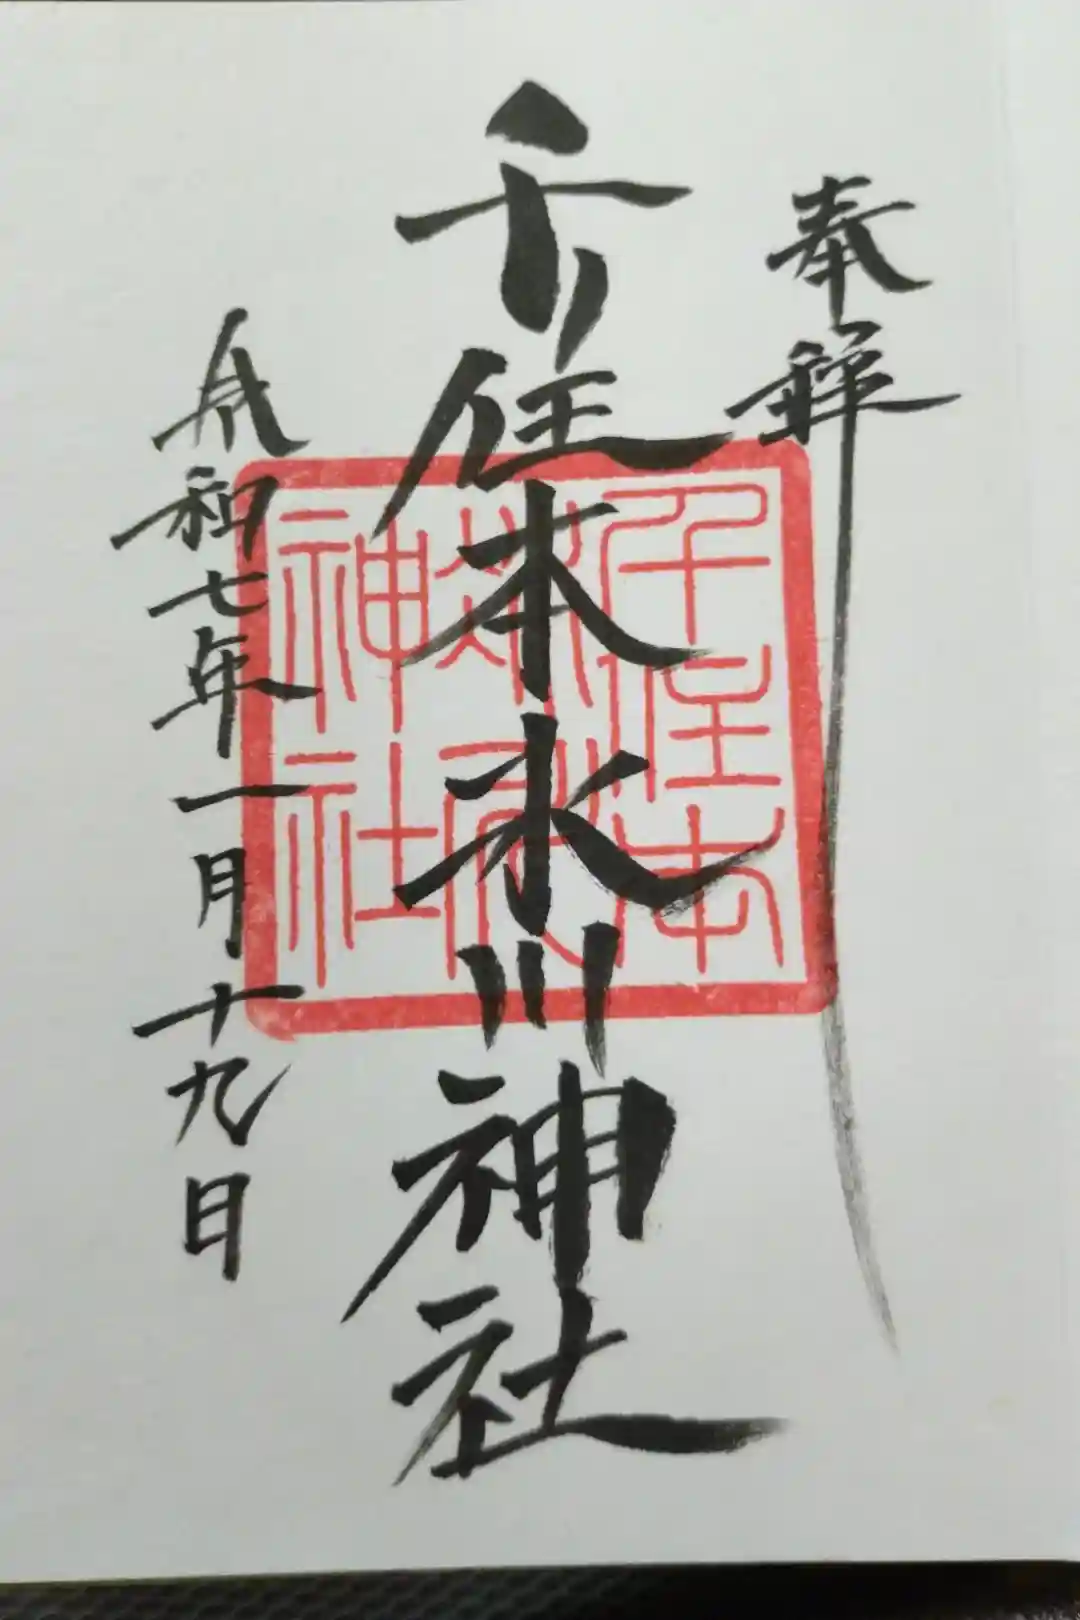 奉拝
千住本氷川神社
千住本
氷川
神社
令和七年一月十九日